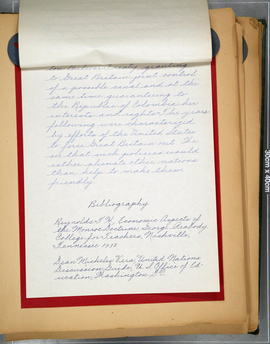 to Great Britain joint control
of a possible canal and at the
same time guaranteeing to
the Republic of Colombia her
interests and rights. The years
following were characterized
by efforts of the United States
to force Great Britain out. The
rather alienate other nations
than help to make them
friendly.
Bibliography
Reynolds T. W. Economic Aspects of
the Monroe Doctrine George Peabody
College for Teachers, Nashville,
Tennessee 1938
Dean Micheles Vera, United Nations
Discussion Guide, U.S Office of Ed-
ucation, Washington D.C.
30cm x 40cm